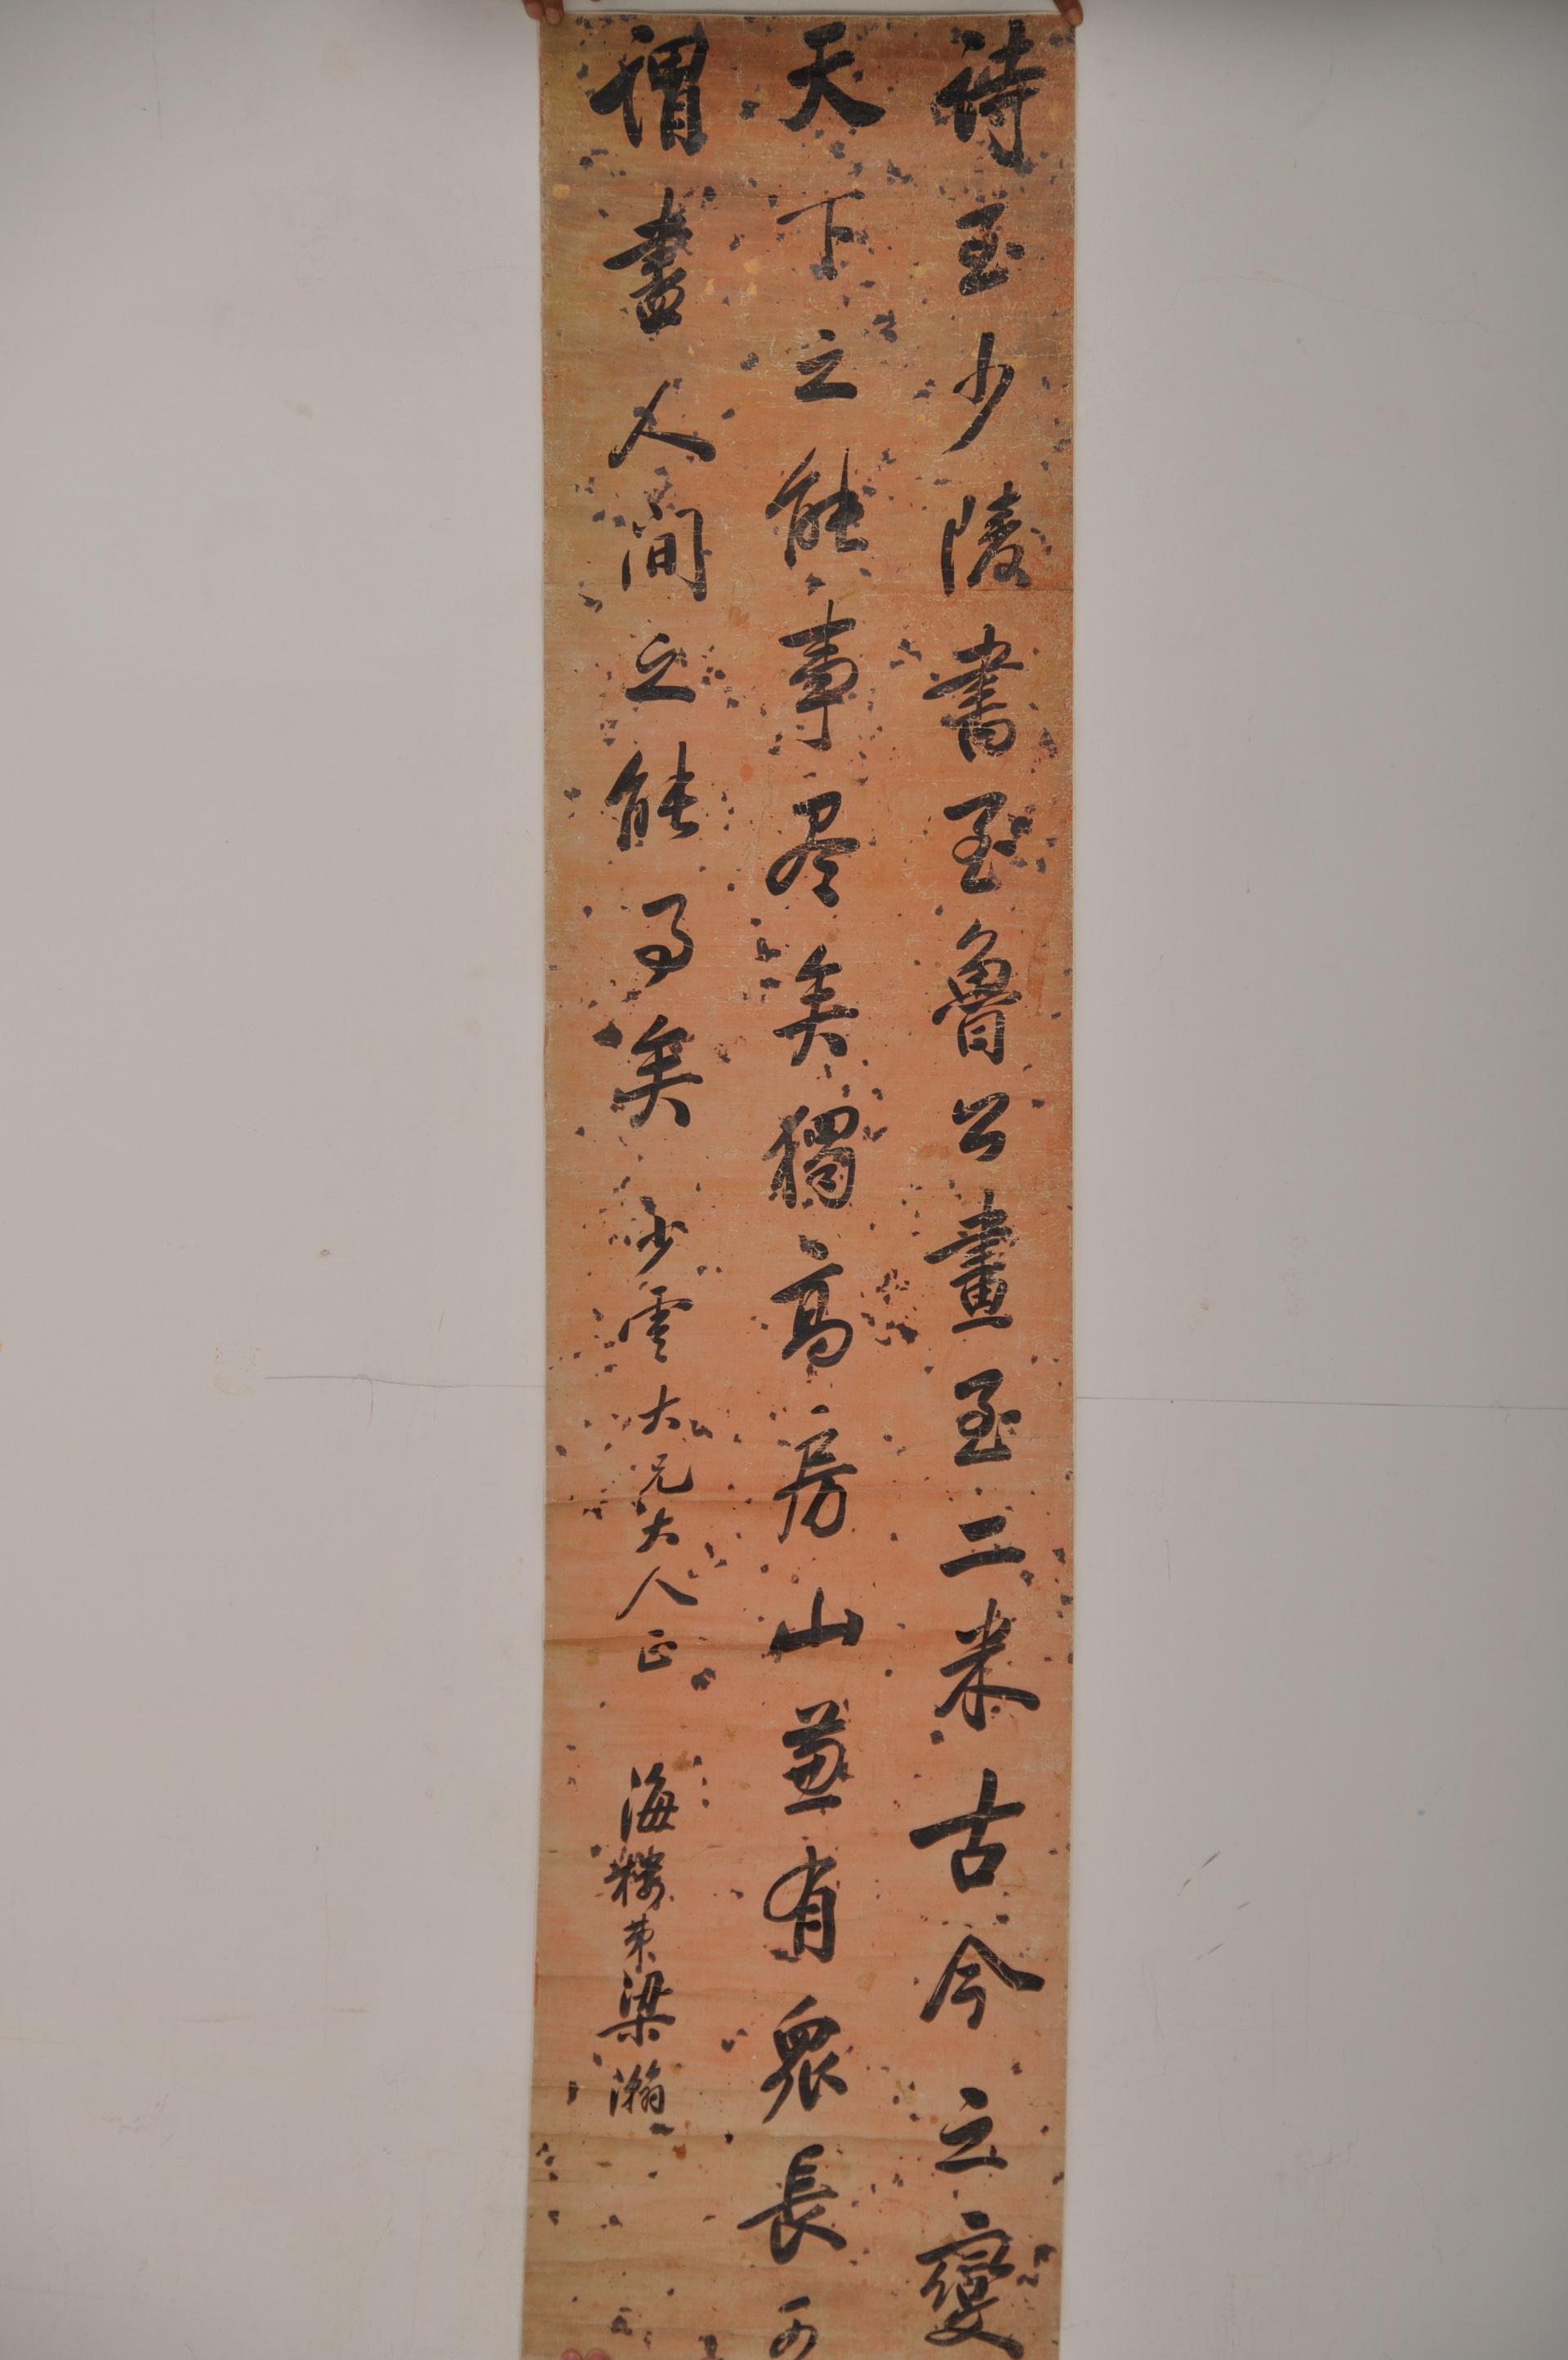 詩至少陵書至魯公畫至二米古今之變
天下之能事尽矣獨高房山兼有眾長可
謂盡人間之能事矣 少雲大兄大人正 海樓弟梁瀚